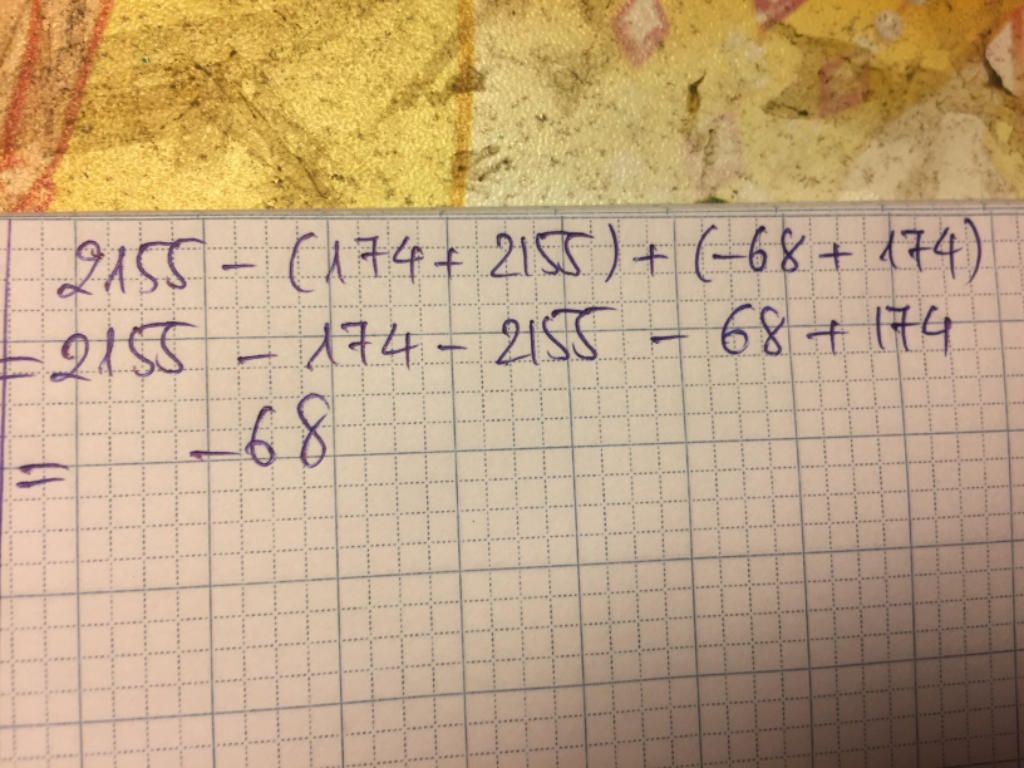 2155 - (174 + 2155) + (-68 + 174)
= 2155 - 174 - 2155 - 68 + 174
= -68